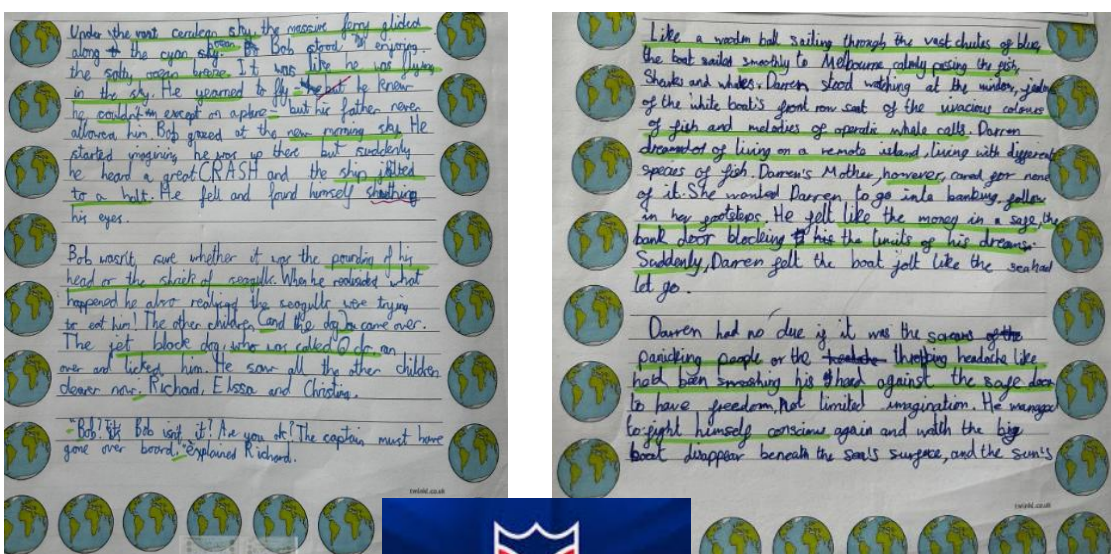 Under the vast cerulean sky, the massive ferry glided
along the cyan sky. ocean Bob stood enjoying
the salty ocean breeze. It was like he was flying
in the sky. He yearned to fly - he knew
he couldn't except on a plane - but his father never
allowed him. Bob gazed at the new morning sky. He
started imagining he was up there but suddenly
he heard a great CRASH and the ship jolted
to a halt. He fell and found himself
his eyes.
Bob wasn't sure whether it was the pounding of his
head or the shriek of seagulls. When he realised what
happened he also realised the seagulls were trying
to eat him! The other children (and the dog) came over.
The jet black dog, who was called ran
over and licked him. He saw all the other children
clearer now: Richard, Elssa and Christina.
"Bob? It's Bob isn't it? Are you ok? The captain must have
gone over board." explained Richard.
twinkl.co.uk
Like a wooden ball sailing through the vast chutes of blue,
the boat sailed smoothly to Melbourne calmly passing the fish,
Sharks and whales. Darren stood watching at the window,
of the white boat's front row seat of the vivacious colours
of fish and melodies of operatic whale calls. Darren
dreamed of living on a remote island, living with different
species of fish. Darren's Mother, however, cared for none
of it. She wanted Darren to go into banking, follow
in her footsteps. He felt like the money in a safe, the
bank door blockeing the limits of his dreams.
Suddenly, Darren felt the boat jolt like the sea had
let go.
Darren had no clue if it was the screams of the
panicking people or the throbbing headache like
he'd been smashing his head against the safe door
to have freedom, not limited imagination. He managed
to fight himself conscious again and watch the big
boat disappear beneath the sea's surface, and the sun's
twinkl.co.uk